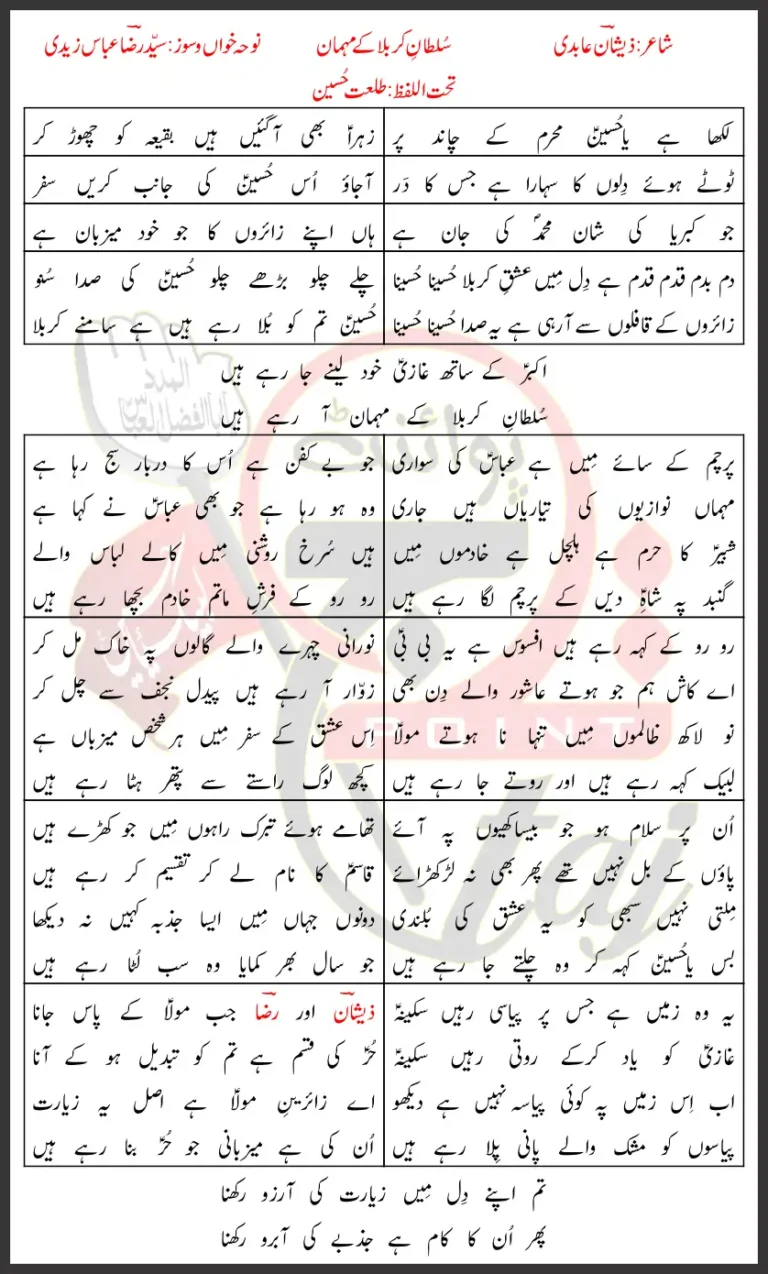 شاعر: ذیشانؔ عابدی
سُلطانِ کربلا کے مہمان
نوحہ خواں و سوز: سیّد رضاؔ عباس زیدی
تحت اللفظ: طلعت حُسین
لکھا ہے یاحُسینؑ محرم کے چاند پر
زہراؑ بھی آ گئیں ہیں بقیعہ کو چھوڑ کر
ٹوٹے ہوئے دِلوں کا سہارا ہے جس کا دَر
آ جاؤ اُس حُسینؑ کی جانب کریں سفر
جو کبریا کی شان محمدؐ کی جان ہے
ہاں اپنے زائروں کا جو خود میزبان ہے
دم بدم قدم قدم ہے دِل مِیں عشقِ کربلا حُسینا حُسینا
زائروں کے قافلوں سے آ رہی ہے یہ صدا حُسینا حُسینا
چلے چلو بڑھے چلو حُسینؑ کی صدا سُنو
حُسینؑ تم کو بُلا رہے ہیں ہے سامنے کربلا
اکبرؑ کے ساتھ غازیؑ خود لینے جا رہے ہیں
سُلطانِ کربلا کے مہمان آ رہے ہیں
پرچم کے سائے مِیں ہے عباسؑ کی سواری
مہماں نوازیوں کی تیاریاں ہیں جاری
شبیرؑ کا حرم ہے ہلچل ہے خادموں مِیں
گنبد پہ شاہِؑ دیں کے پرچم لگا رہے ہیں
جو بے کفن ہے اُس کا دربار سج رہا ہے
وہ ہو رہا ہے جو بھی عباسؑ نے کہا ہے
ہیں سُرخ روشنی مِیں کالے لباس والے
رو رو کے فرشِ ماتم خادم بچھا رہے ہیں
رو رو کے کہہ رہے ہیں افسوس ہے یہ بی بیؑ
اے کاش ہم جو ہوتے عاشور والے دِن بھی
نو لاکھ ظالموں مِیں تنہا نا ہوتے مولاؑ
لبیک کہہ رہے ہیں اور روتے جا رہے ہیں
نورانی چہرے والے گالوں پہ خاک مل کر
زوّار آ رہے ہیں پیدل نجف سے چل کر
اس عشق کے سفر مِیں ہر شخص میزباں ہے
کچھ لوگ راستے سے پتھر ہٹا رہے ہیں
اُن پر سلام ہو جو بیساکھیوں پہ آئے
پاؤں کے بل نہیں تھے پھر بھی نہ لڑکھڑائے
مِلتی نہیں سبھی کو یہ عشق کی بُلندی
بس یاحُسینؑ کہہ کر وہ چلتے جا رہے ہیں
تھامے ہوئے تبرک راہوں مِیں جو کھڑے ہیں
قاسمؑ کا نام لے کر تقسیم کر رہے ہیں
دونوں جہاں مِیں ایسا جذبہ کہیں نہ دیکھا
جو سال بھر کمایا وہ سب لُٹا رہے ہیں
یہ وہ زمیں ہے جس پر پیاسی رہیں سکینہؑ
غازیؑ کو یاد کرکے روتی رہیں سکینہؑ
اب اِس زمیں پہ کوئی پیاسہ نہیں ہے دیکھو
پیاسوں کو مشک والے پانی پِلا رہے ہیں
ذیشانؔ اور رضاؔ جب مولاؑ کے پاس جانا
حُرؑ کی قسم ہے تم کو تبدیل ہو کے آنا
اے زائرینِ مولاؑ ہے اصل یہ زیارت
اُن کی ہے میزبانی جو حُرؑ بنا رہے ہیں
تم اپنے دِل مِیں زیارت کی آرزو رکھنا
پھر اُن کا کام ہے جذبے کی آبرو رکھنا
المدد
یا ابالفضل العباسؑ
پوائنٹ
POINT
taj